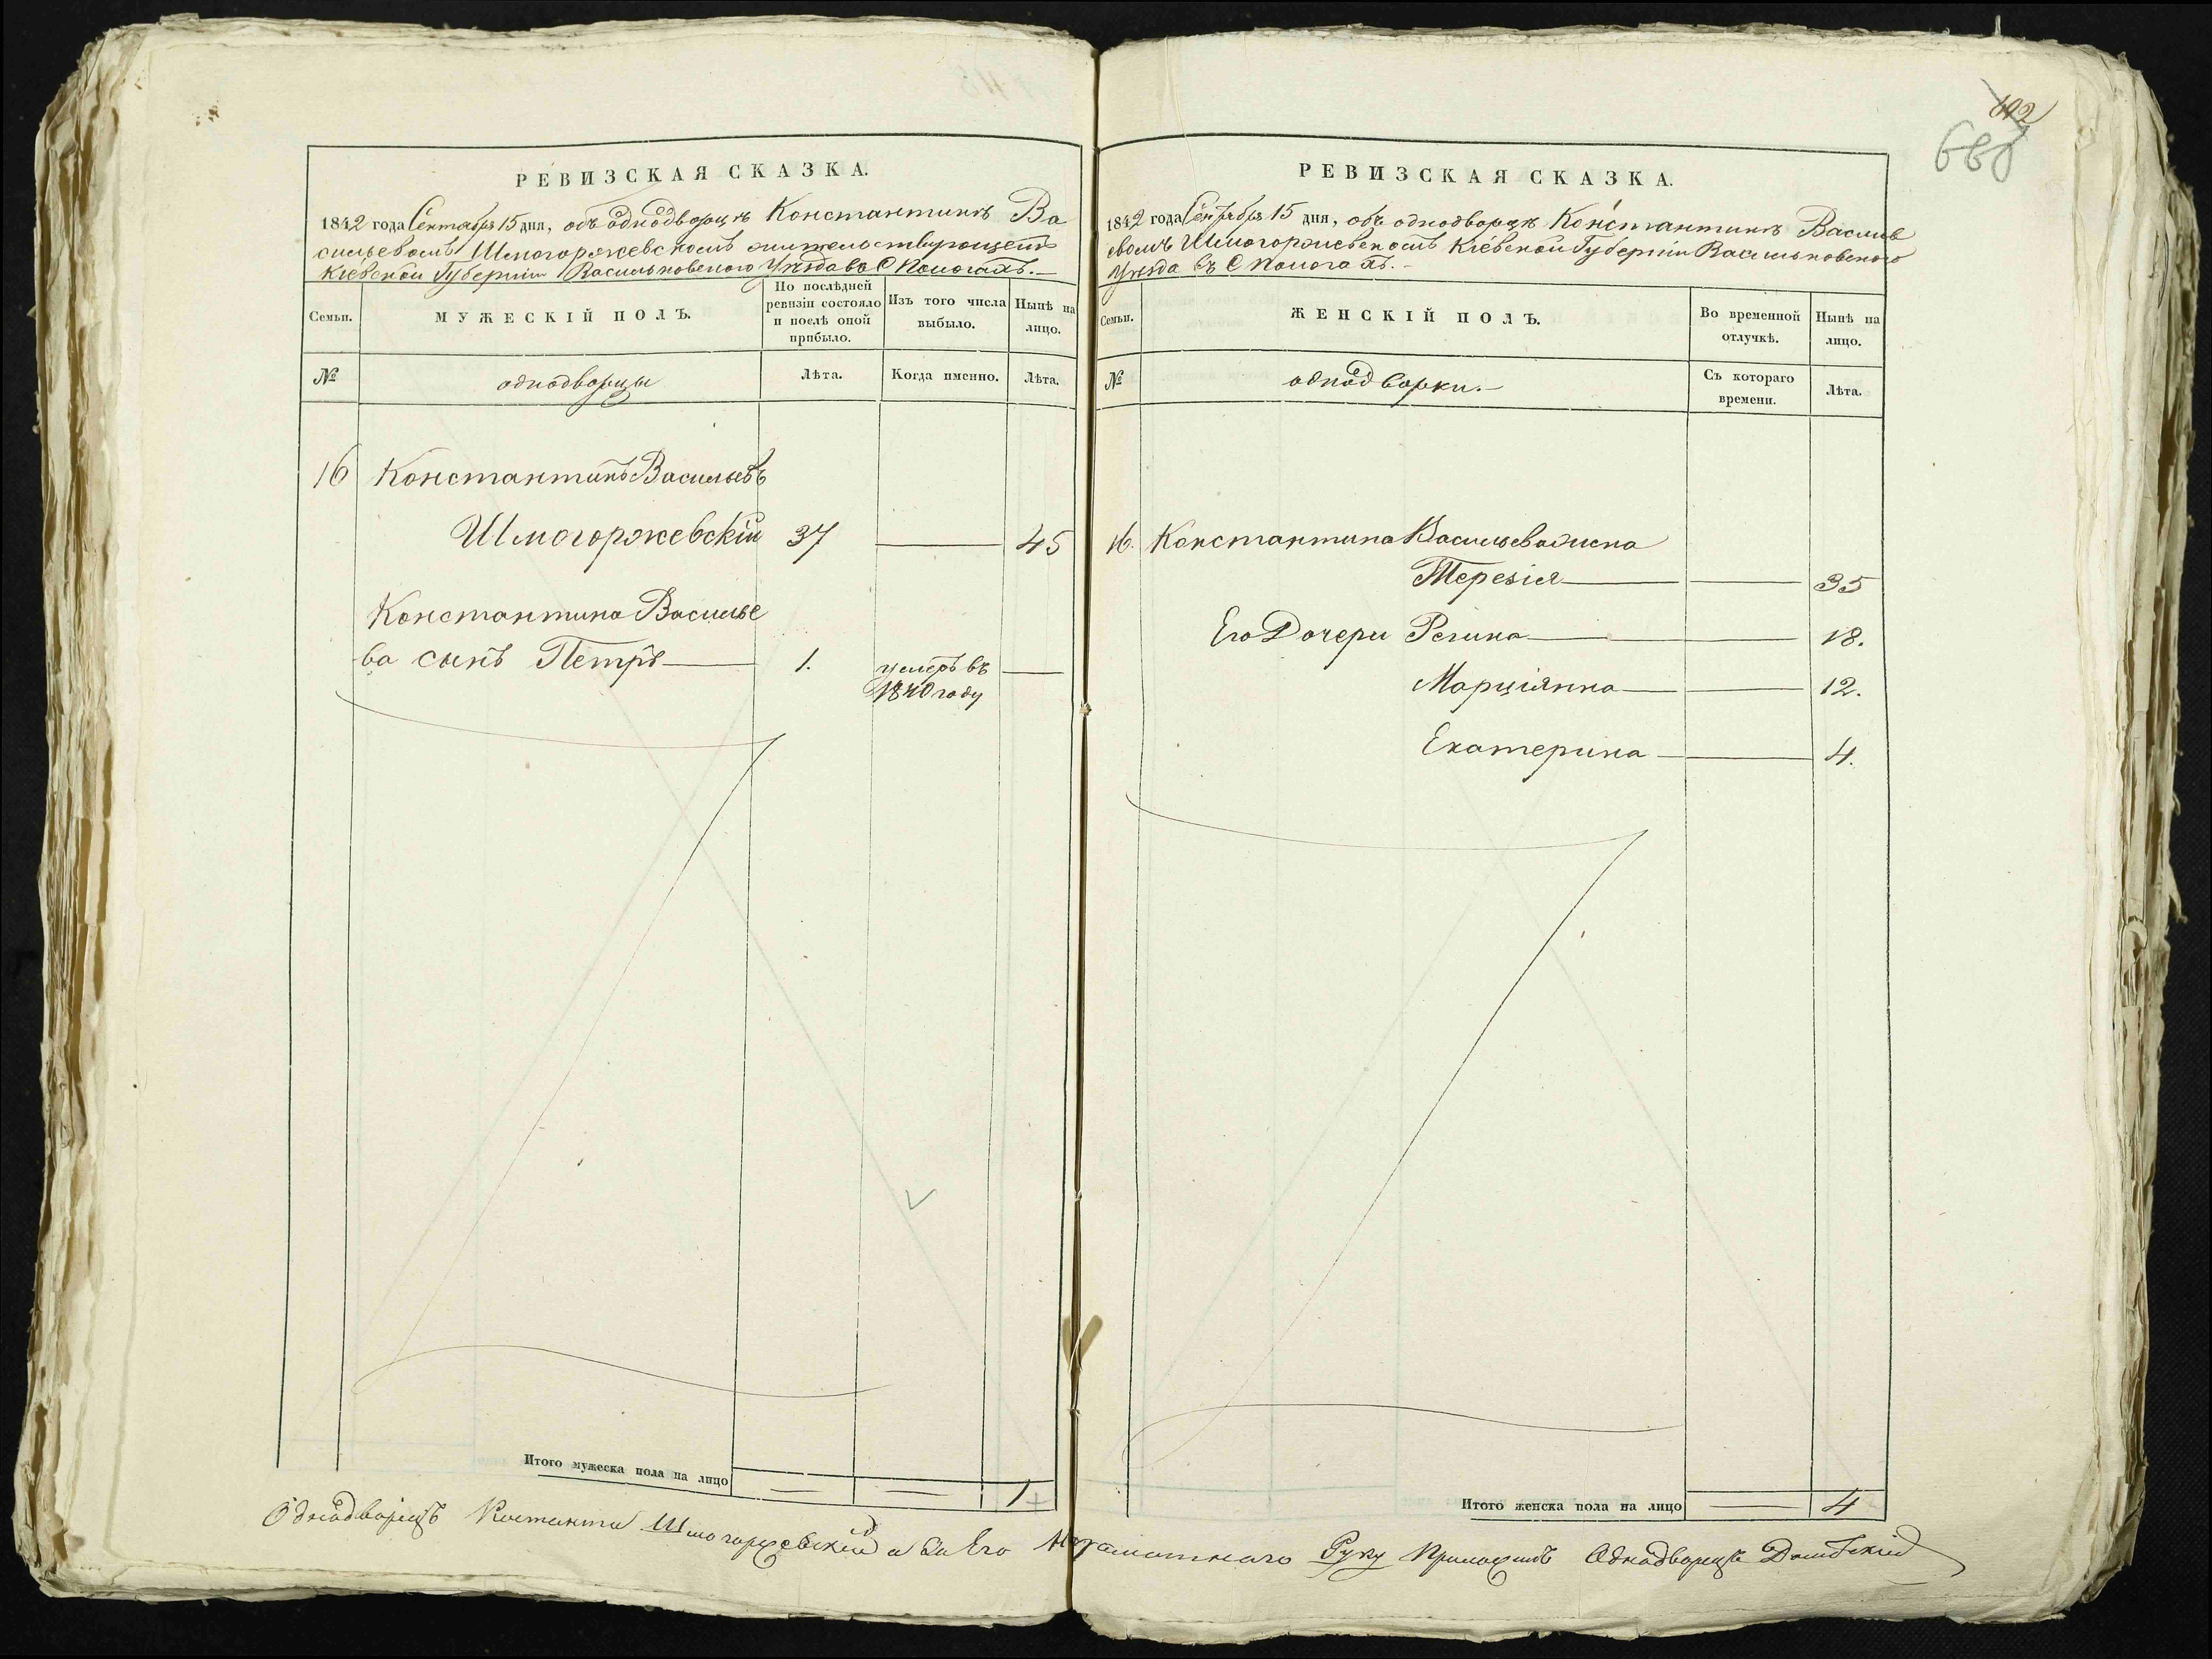 РЕВИЗСКАЯ СКАЗКА.
1842 года Сентября 15 дня, объ однодворцѣ Константинѣ Ва
сильевомъ Шмогоржевскомъ жительствующемъ
Кіевской Губерніи Васильковскаго Уѣзда въ С
Семьи.
МУЖЕСКІЙ ПОЛЪ.
По послѣдней
ревизіи состояло
и послѣ оной
прибыло.
Изъ того числа
выбыло.
Нынѣ на
лицо.
№
однодворцы
Лѣта.
Когда именно.
Лѣта.
16 Константинъ Васильевъ
Шмогоржевскій 37 — 45
Константина Василье
ва сынъ Петръ — 1. умеръ въ —
1840 году
Итого мужеска пола на лицо — — 1
602
РЕВИЗСКАЯ СКАЗКА.
1842 года Сентября 15 дня, объ однодворцѣ Константинѣ Василье
евомъ Шмогоржевскомъ Кіевской Губерніи Васильковскаго
Уѣзда въ С
Семьи.
ЖЕНСКІЙ ПОЛЪ.
Во временной
отлучкѣ.
Нынѣ на
лицо.
№
однодворки.—
Съ котораго
времени.
Лѣта.
16. Константина Васильева жена
Терезія — — 35
Его Дочери Регина — — 18.
Марціянна — — 12.
Екатерина — — 4.
Итого женска пола на лицо — 4
Однодворецъ Шмогоржевскій а за Его Неграмотнаго Руку Приложилъ Однодворецъ